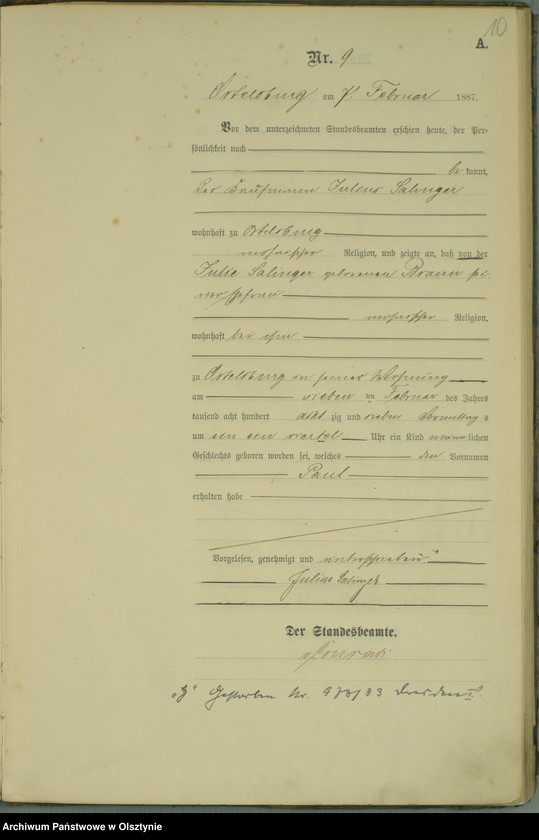 10
A.
Nr. 9
Ortelsburg am 7. Februar 1887.
Vor dem unterzeichneten Standesbeamten erschien heute, der Per-
sönlichkeit nach
be kannt,
der Kaufmann Julius Salinger
wohnhaft zu Ortelsburg
mosaischer Religion, und zeigte an, daß von der
Julie Salinger geborenen Braun sei-
ner Ehefrau
mosaischer Religion,
wohnhaft bei ihm
zu Ortelsburg in seiner Wohnung
am sieben ten Februar des Jahres
tausend acht hundert acht zig und sieben Vormittag s
um ein ein viertel Uhr ein Kind männlichen
Geschlechts geboren worden sei, welches den Vornamen
Paul
erhalten habe
Vorgelesen, genehmigt und unterschrieben
Julius Salinger
Der Standesbeamte.
Gestorben Nr. Dresden
Archiwum Państwowe w Olsztynie